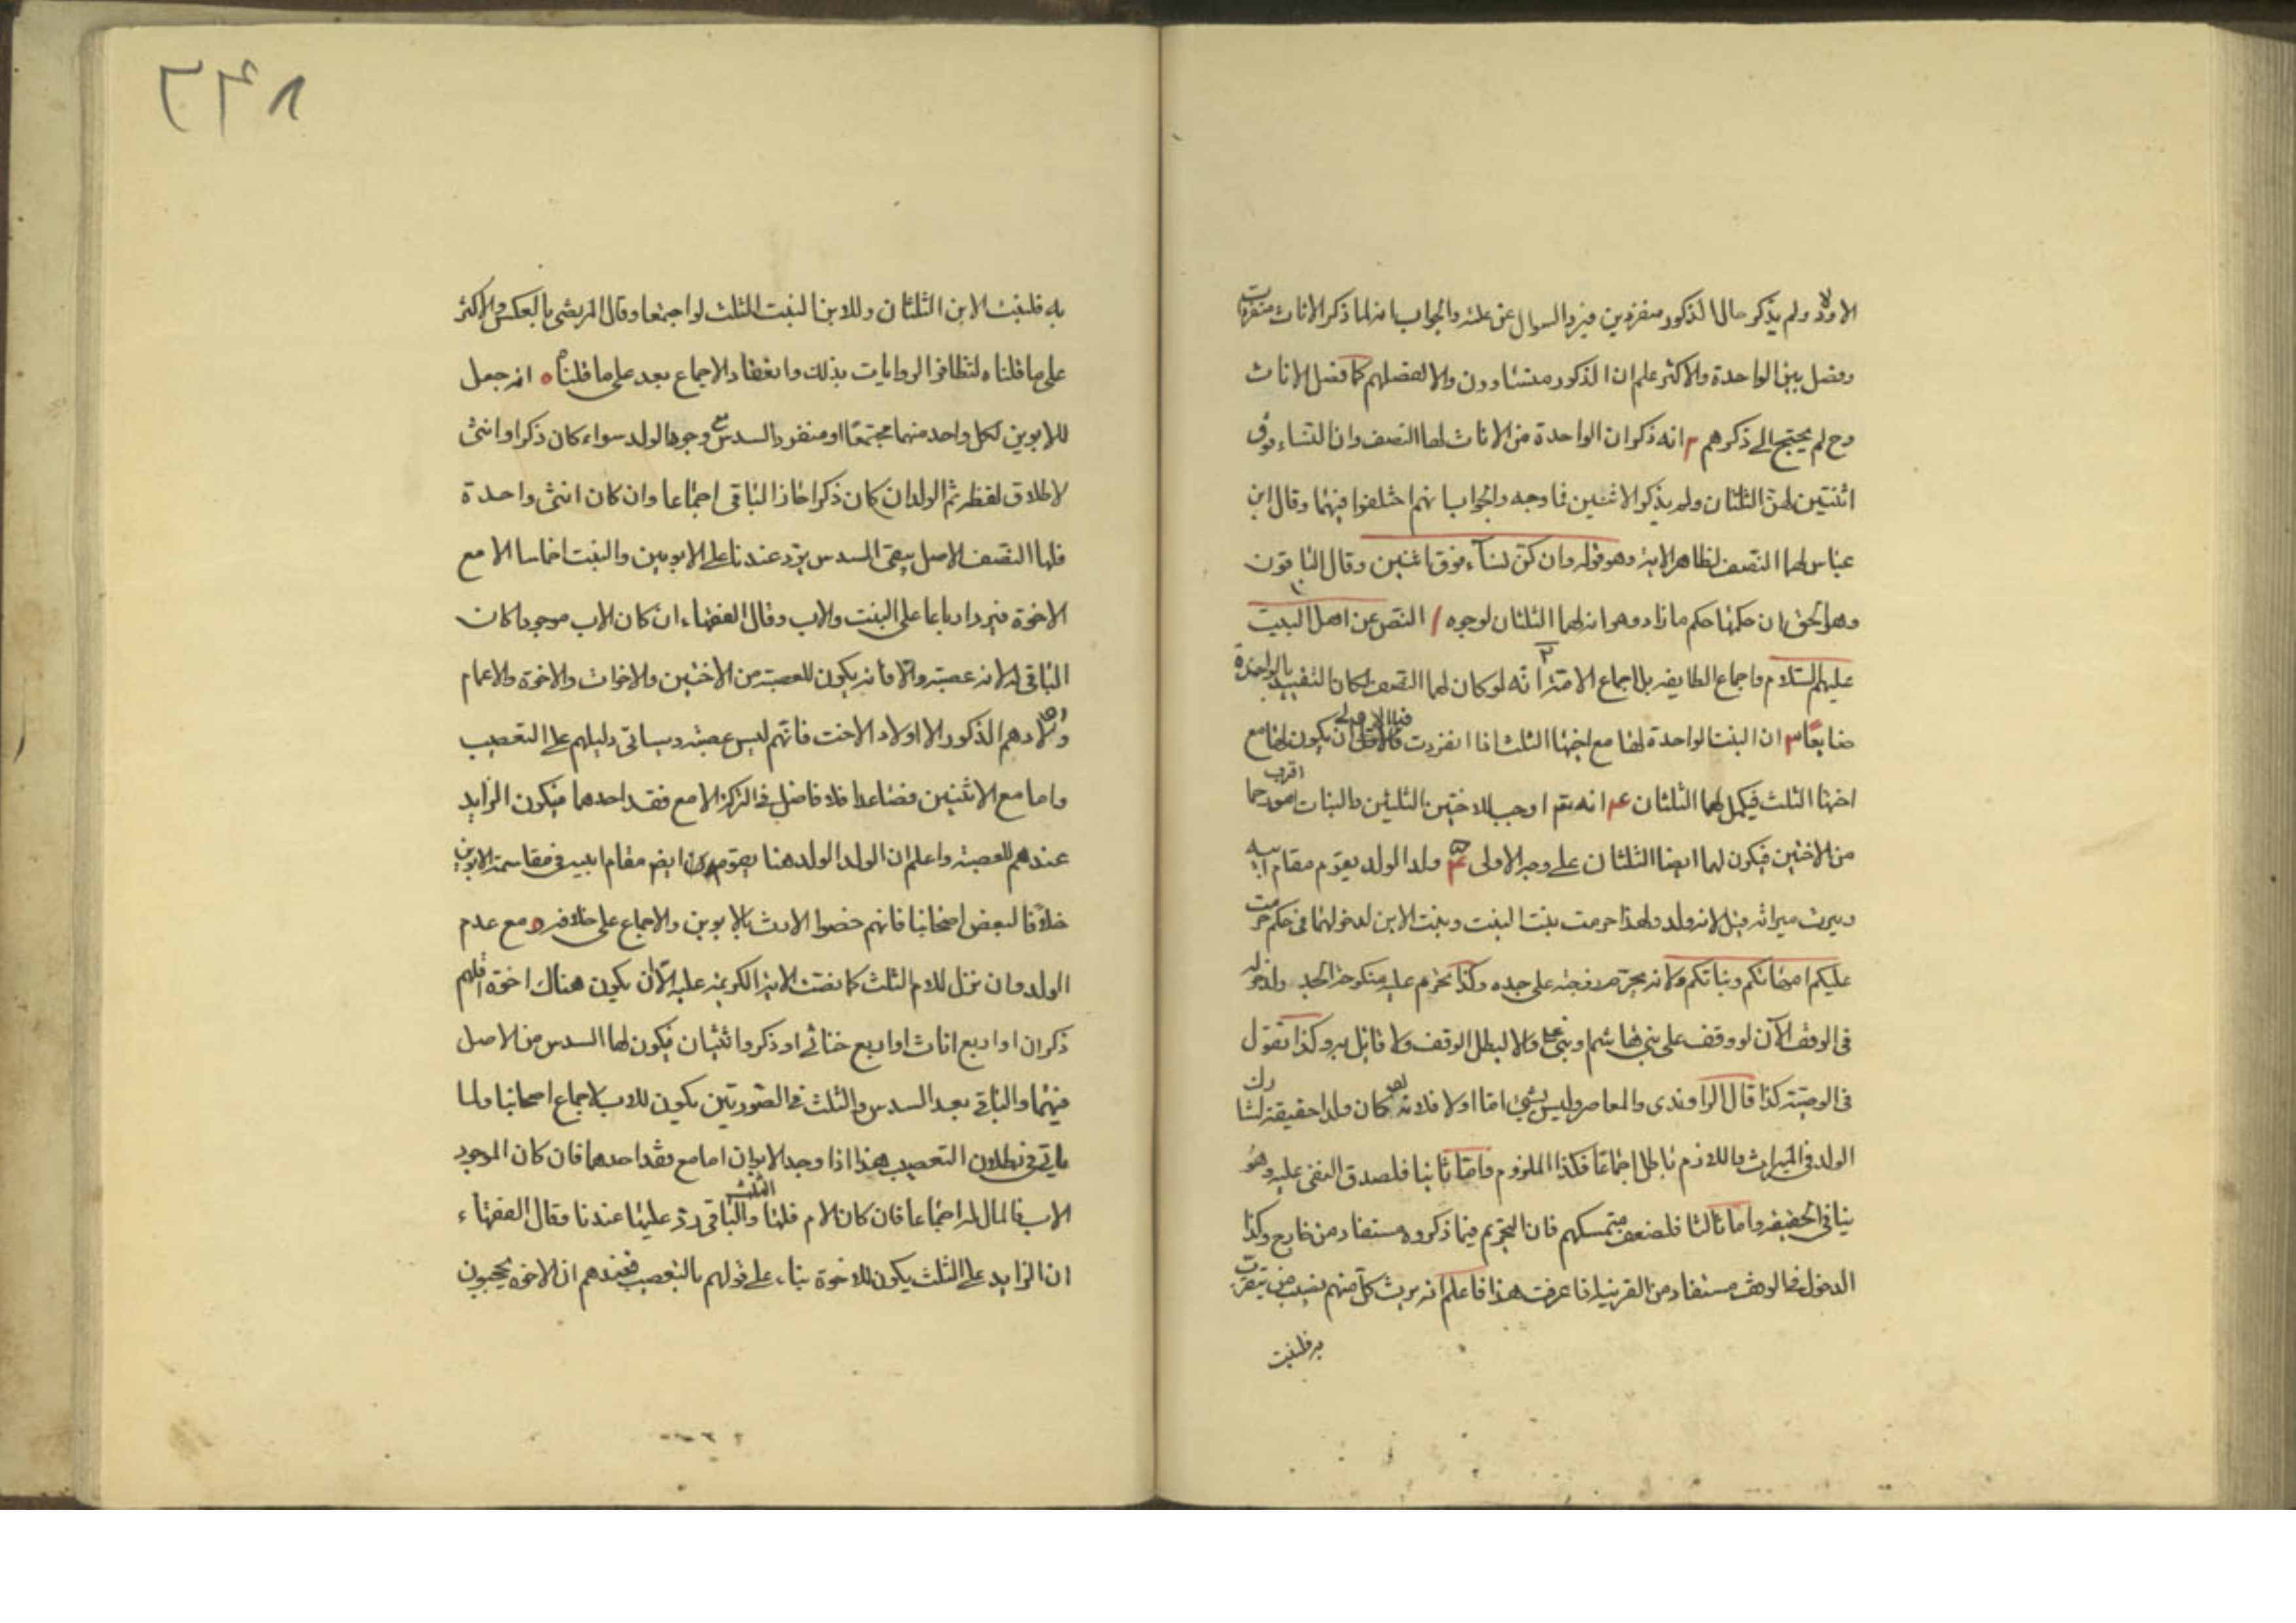 الاولاد ولم يذكر حال الذكور منفردين فيرد السوال عن علته والجواب انه لما ذكر الاناث منفردات
وفصل بين الواحدة والاكثر علم ان الذكور متساوون والا لفصلهم كما فصل الاناث
وح لم يحتج الى ذكرهم ٢ انه ذكر ان الواحدة من الاناث لها النصف وان النساء فوق
اثنتين لهن الثلثان ولم يذكر الاثنتين فما وجهه والجواب انهم اختلفوا فيهما وقال ابن
عباس لهما النصف لظاهر الاية وهو قوله وان كن نساء فوق اثنتين وقال الباقون
وهو الحق ان حكمهما حكم ما زاد وهو ان لهما الثلثان لوجوه ١ النص عن اهل البيت
عليهم السلام واجماع الطايفة بل اجماع الامة ٢ انه لو كان لهما النصف لكان التقييد بالواحدة
ضايعا ٣ ان البنت الواحدة لها مع اخيها الثلث اذا انفردت فبالاولى ان يكون لها مع
اختها الثلث فيكمل لهما الثلثان ٤ انه تع اوجب للاختين الثلثين والبنات اقرب رحما
من الاختين فيكون لهما ايضا الثلثان على وجه الاولى ولد الولد يقوم مقام ابيه
ويرث ميراثه قيل لانه ولد ولهذا حرمت بنت البنت وبنت الابن لدخولهما في حكم حرمت
عليكم امهاتكم وبناتكم ولانه يحرم زوجته على جده وكذا تحرم عليه منكوحة الجد ولدخوله
فى الوقف الآن لو وقف على بنى هاشم وبنى على والا لبطل الوقف ولا قائل به وكذا تقول
فى الوصية كذا قال الراوندى والمعاصر وليس بشئ اما اولا فلانه لو كان ولدا حقيقة لشارك
الولد فى الميراث واللازم باطل اجماعا فكذا الملزوم واما ثانيا فلصدق النفى عليه وهو
ينافى الحقيقة واما ثالثا فلضعف متمسكهم فان التحريم فيما ذكروه مستفاد من خارج وكذا
الدخول في الوقف مستفاد من القرينة اذا عرفت هذا فاعلم انه يرث كل منهم نصيب من يتقرب
به فلبنت
٢٣٨
به فلبنت الابن الثلثان وللابن البنت الثلث لو اجتمعا وقال المرتضى بالعكس والاكثر
على ما قلناه لتظافر الروايات بذلك وانعقاد الاجماع بعد على ما قلناه ٥ انه جعل
للابوين لكل واحد منهما مجتمعا او منفردا السدس مع وجود الولد سواء كان ذكرا او انثى
لاطلاق لفظه ثم الولد ان كان ذكرا حاز الباقى اجماعا وان كان انثى واحدة
فلها النصف الاصل يبقى السدس يرد عندنا على الابوين والبنت اخماسا الا مع
الاخوة فيرد ارباعا على البنت والاب وقال الفقهاء ان كان الاب موجودا كان
الباقى له لانه عصبة والا فانه يكون للعصبة من الاختين والاخوات والاخوة والاعمام
واولادهم الذكور الا اولاد الاخت فانهم ليس عصبة وسياتى دليلهم على التعصيب
واما مع الاثنتين فصاعدا فلا فاضل في التركة الا مع فقد احدهما فيكون الزايد
عندهم للعصبة واعلم ان الولد الولد هنا يقوم ايض مقام ابيه فى مقاسمة الابوين
خلافا لبعض اصحابنا فانهم خصوا الارث بالابوين والاجماع على خلافه ٥ مع عدم
الولد وان نزل للام الثلث كما نصت الاية الكريمة عليه الا ان يكون هناك اخوة اقلهم
ذكران او اربع اناث او اربع خناثى او ذكر وانثيان فيكون لها السدس من الاصل
فيهما والباقى بعد السدس والثلث في الصورتين يكون للاب لاجماع اصحابنا ولما
ياتى فى بطلان التعصيب هذا اذا وجد الابوان اما مع فقد احدهما فان كان الموجود
الاب فالمال له اجماعا فان كان الام فلها الثلث والباقى رد عليها عندنا وقال الفقهاء
ان الزايد على الثلث يكون للاخوة بناء على قولهم بالتعصيب فعندهم ان الاخوة يحجبون